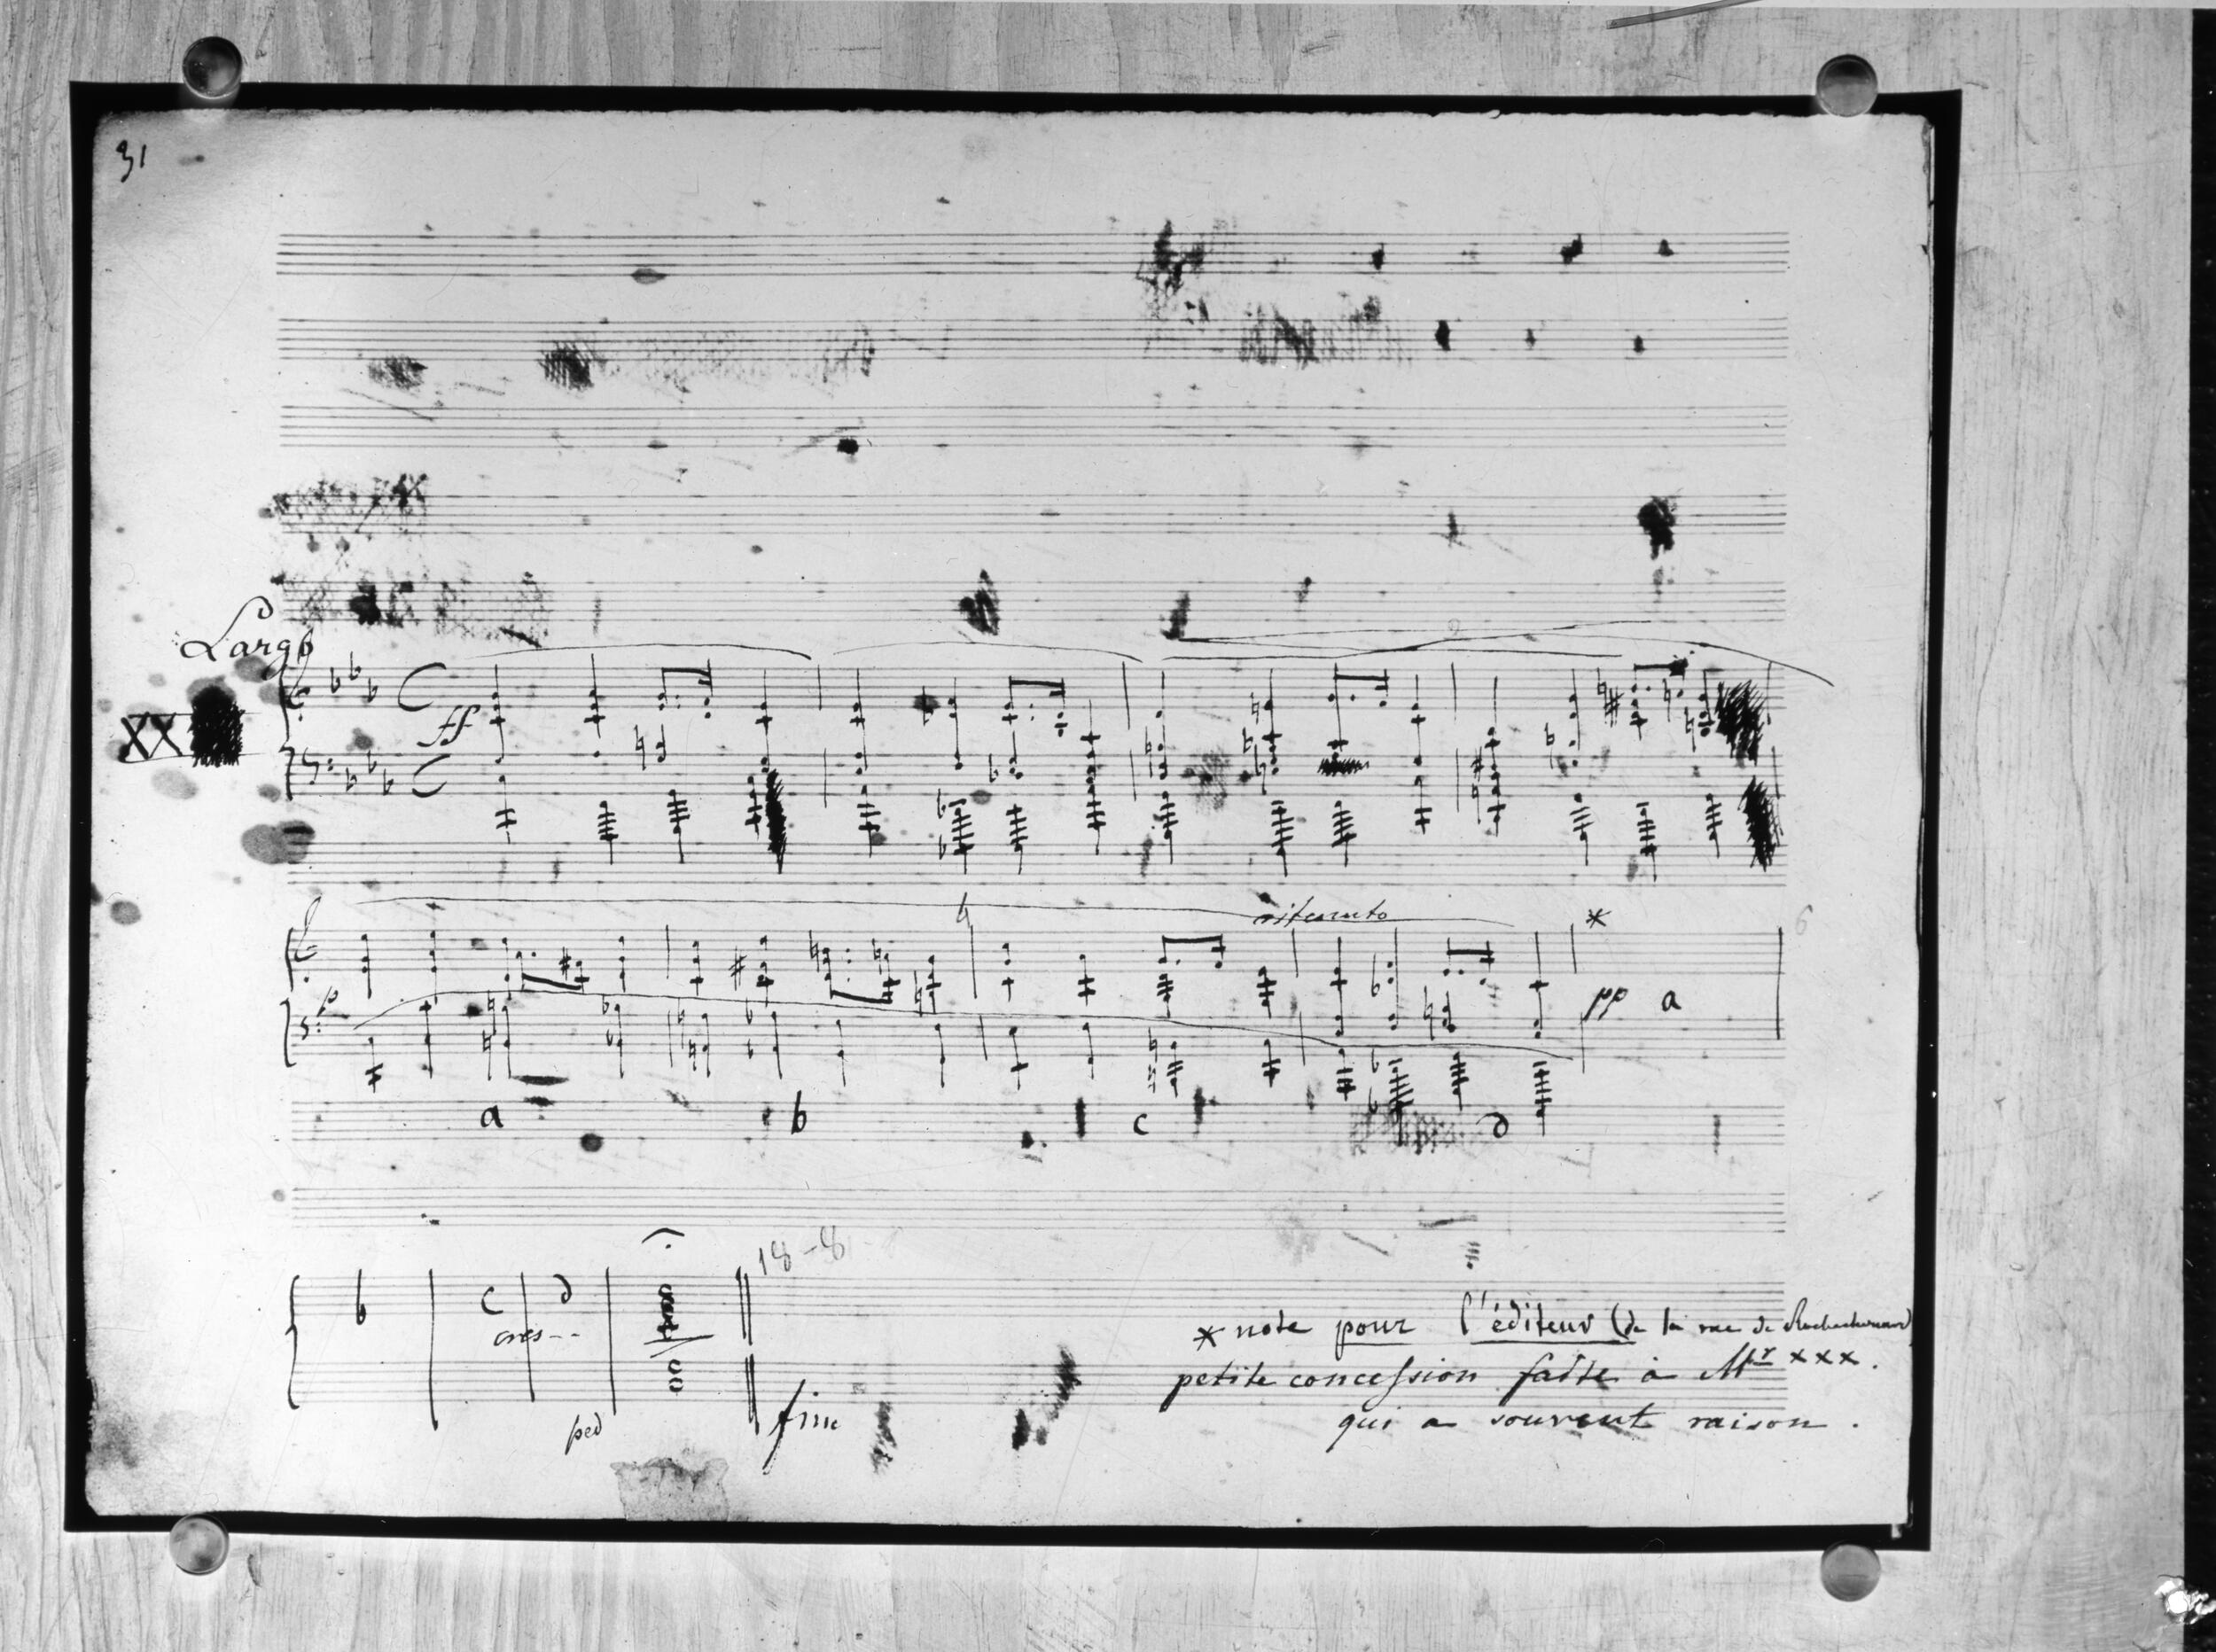 31
Largo
XX
ff
ritenuto
*
p
pp a
a b c d
18-8
b c d
cres--
* note pour l'éditeur (de la rue de Rochechouard)
petite concession faite à Mr xxx.
ped
fine
qui a souvent raison.